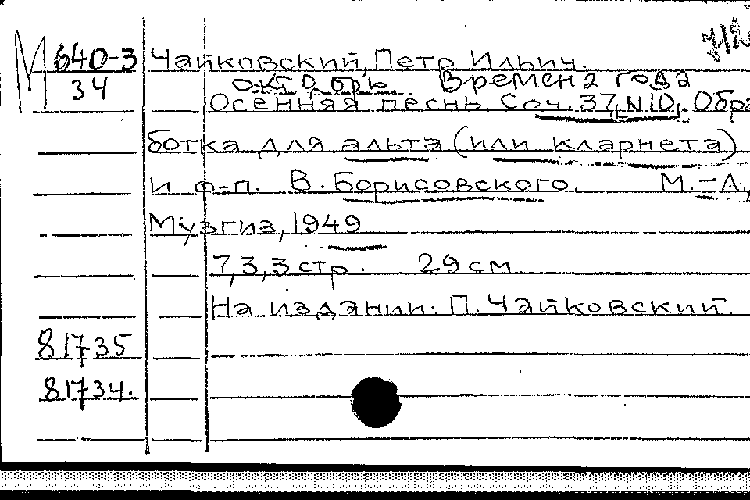 М 640-3 Чайковский, Петр Ильич.
34 октябрь Времена года
Осенняя песнь Соч. 37, N.10. Обра
ботка для альта (или кларнета)
и ф-п. В. Борисовского. М.-Л,
Музгиз, 1949
7, 3, 3 стр. 29 см
На издании: П. Чайковский.
81735
81734.